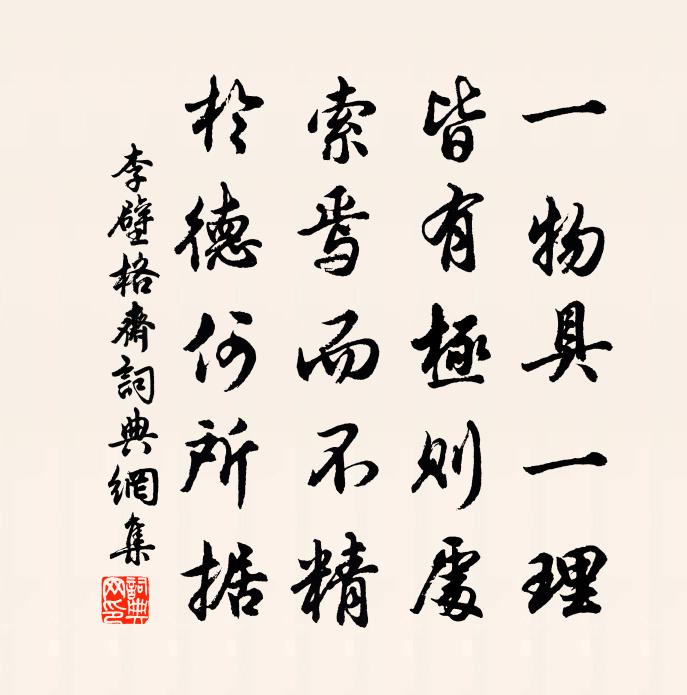 一物具一理
皆有極則處
索焉而不精
於德何所据
李壁格齋詞典網集
詞典网印